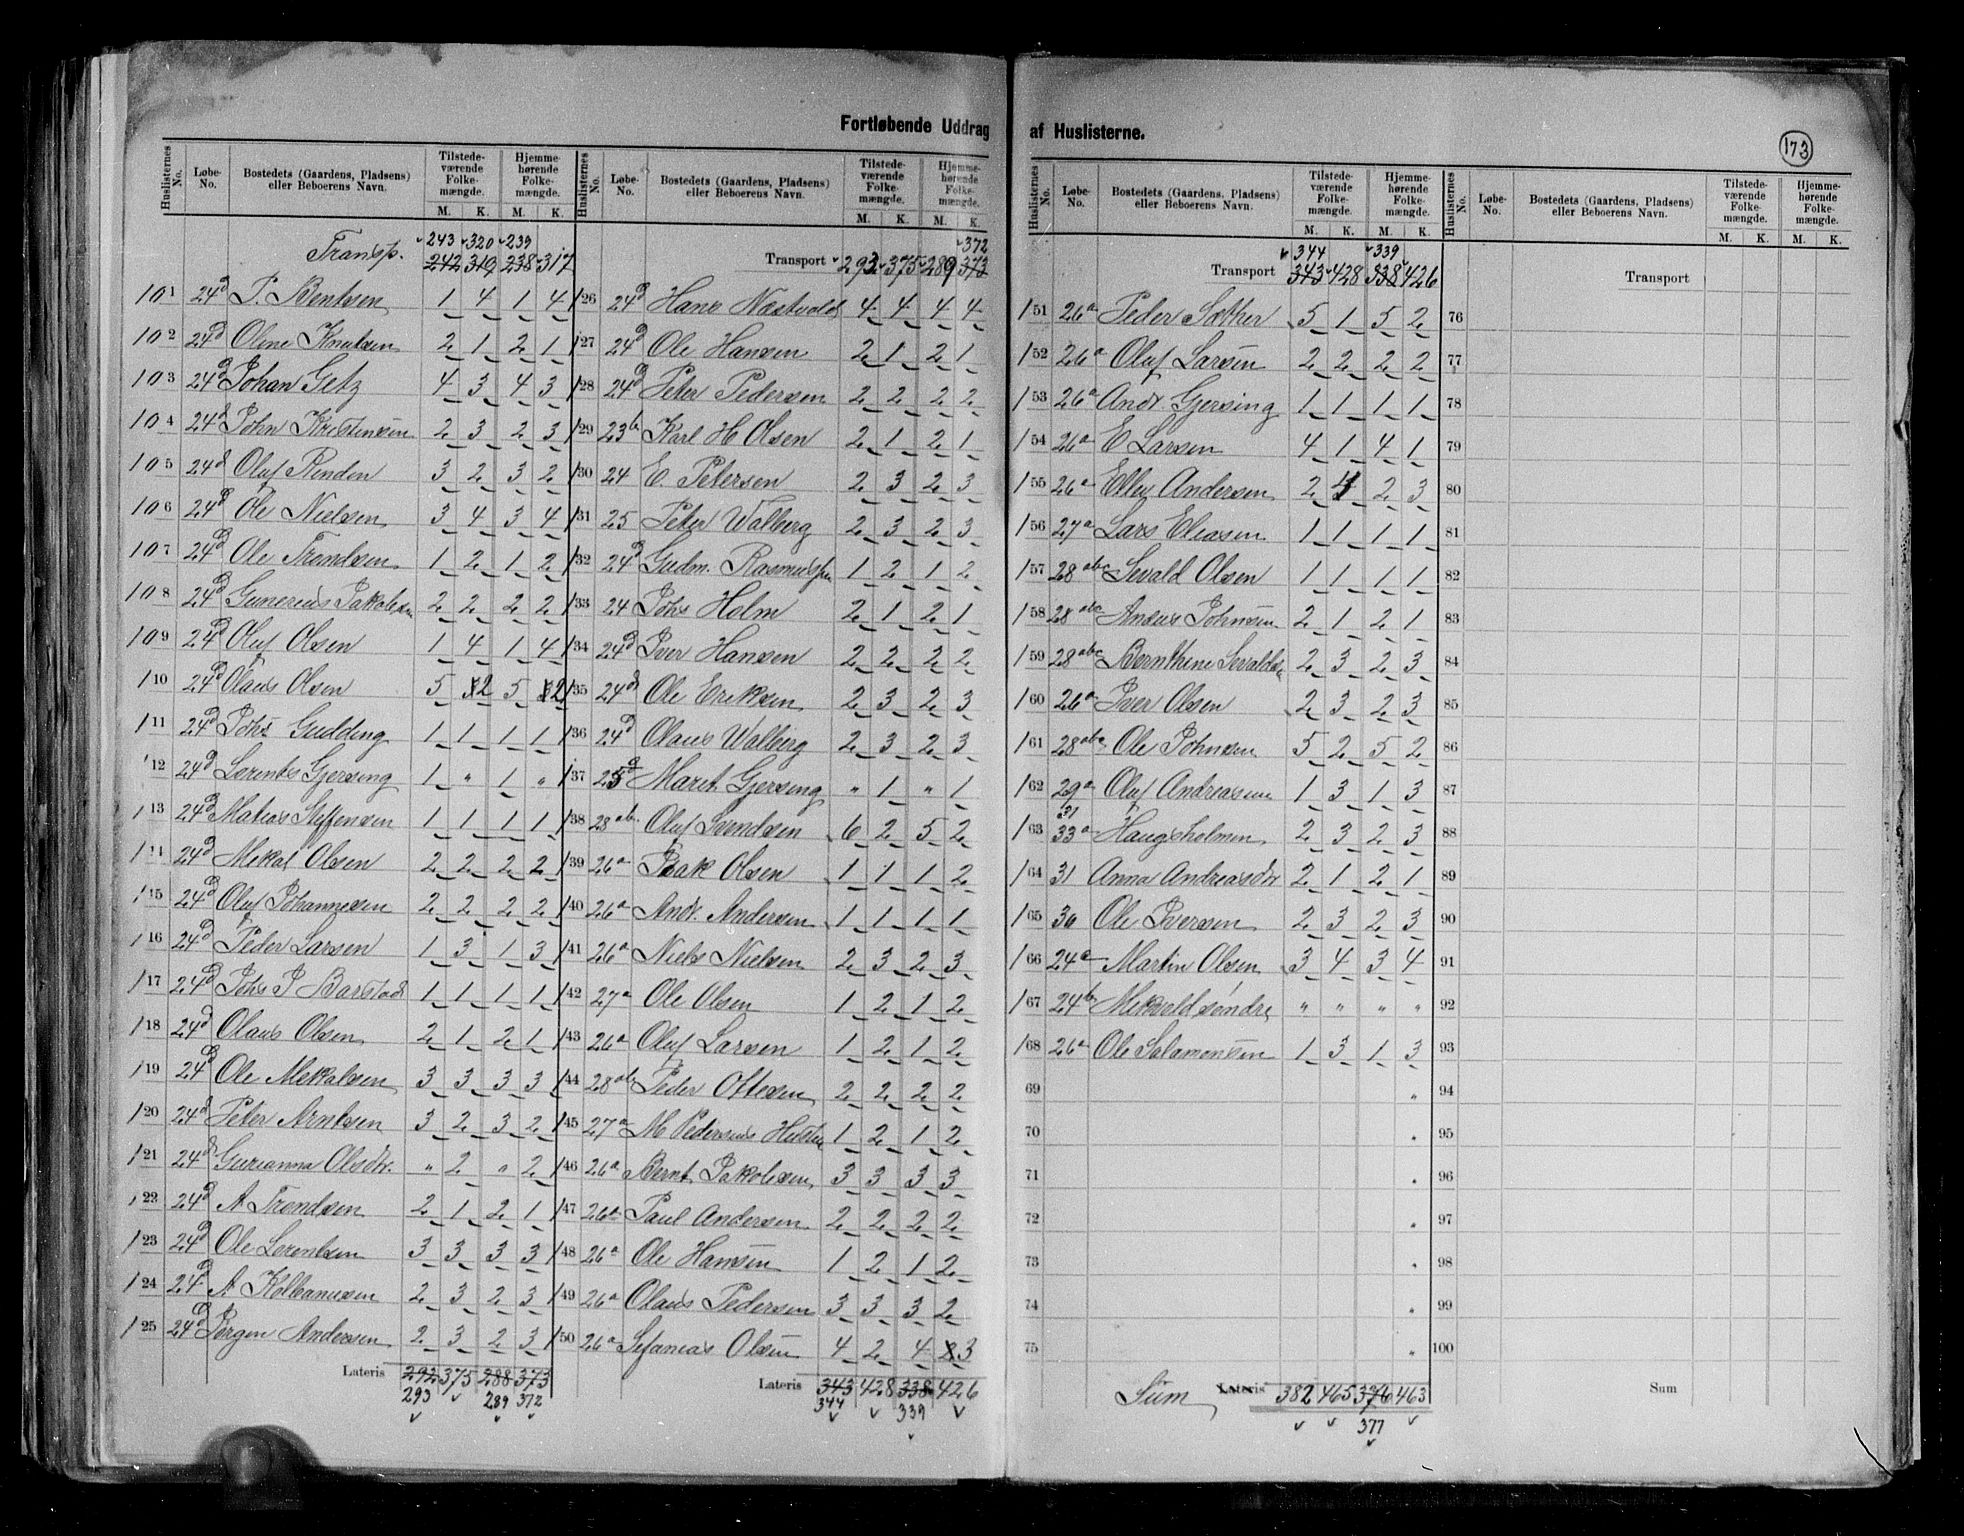 Fortløbende Uddrag af Huslisterne.
173
Huslisternes No. Løbe-No. Bostedets (Gaardens, Pladsens) eller Beboerens Navn. Tilstedeværende Folkemængde. M. K. Hjemmehørende Folkemængde. M. K.
Transp. 243 320 239
242 319 238 317
101 24d P. Bentsen 1 4 1 4
102 24d Oline Knutsen 2 1 2 1
103 24d Johan Getz 4 3 4 3
104 24d John Kristensen 2 3 2 3
105 24d Oluf Rinden 3 2 3 2
106 24d Ole Nielsen 3 4 3 4
107 24d Ole Trondsen 1 2 1 2
108 24d Gunerius Jakobsen 2 2 2 2
109 24d Oluf Olsen 1 4 1 4
110 24d Olaus Olsen 5 2 5 2
111 24d Johs Gudding 1 1 1 1
112 24d Lorents Gjersing 1 " 1 "
113 24d Matias Steffensen 1 1 1 1
114 24d Mekal Olsen 2 2 2 2
115 24d Oluf Johannesen 2 2 2 2
116 24d Peder Larsen 1 3 1 3
117 24d Johs P Barstad 1 1 1 1
118 24d Olaus Olsen 2 1 2 1
119 24d Ole Mekalsen 3 3 3 3
120 24d Peter Arntsen 3 2 3 2
121 24d Gurianna Olsdtr. " 2 " 2
122 24d A Trondsen 2 1 2 1
123 24d Ole Lorentsen 3 3 3 3
124 24d A Kolbanussen 2 3 2 3
125 24d Jørgen Andersen 2 3 2 3
Lateris 292 375 288 373
293 289 372
Huslisternes No. Løbe-No. Bostedets (Gaardens, Pladsens) eller Beboerens Navn. Tilstedeværende Folkemængde. M. K. Hjemmehørende Folkemængde. M. K.
372
Transport 293 375 289 373
126 24d Hans Næstvold 4 4 4 4
127 24d Ole Hansen 2 1 2 1
128 24d Peter Pedersen 2 2 2 2
129 23b Karl H Olsen 2 1 2 1
130 24 E. Petersen 2 3 2 3
131 25 Peter Walberg 2 3 2 3
132 24d Gudm. Rasmussen 1 2 1 2
133 24 Johs Holm 2 1 2 1
134 24d Iver Hansen 2 2 2 2
135 24d Ole Eriksen 2 3 2 3
136 24d Olaus Walberg 2 3 2 3
137 Maret Gjersing " 1 " 1
138 28ab Oluf Svendsen 6 2 5 2
139 26a Isak Olsen 1 1 1 2
140 26a Andr. Andersen 1 1 1 1
141 26a Niels Nielsen 2 3 2 3
142 27a Ole Olsen 1 2 1 2
143 26a Oluf Larsen 1 2 1 2
144 28ab Peder Ottesen 2 2 2 2
145 27a M Pedersens 1 2 1 2
146 26a Bernt Jakobsen 3 3 3 3
147 26a Paul Andersen 2 2 2 2
148 26a Ole Hansen 1 2 1 2
149 26a Olaus Pedersen 3 3 3 2
150 26a Sefanias Olsen 4 2 4 3
Lateris 343 428 338 426
344 339
Huslisternes No. Løbe-No. Bostedets (Gaardens, Pladsens) eller Beboerens Navn. Tilstedeværende Folkemængde. M. K. Hjemmehørende Folkemængde. M. K.
344 339
Transport 343 428 338 426
151 26a Peder Sæther 5 1 5 2
152 26a Oluf Larsen 2 2 2 2
153 26a Andr. Gjersing 1 1 1 1
154 26a E Larsen 4 1 4 1
155 26a Ellev Andersen 2 4 2 3
156 27a Lars Eliasen 1 1 1 1
157 28abc Sevald Olsen 1 1 1 1
158 28abc Anders Johnsen 2 1 2 1
159 28abc Bernthine 2 3 2 3
160 26a Iver Olsen 2 3 2 3
161 28abc Ole Johnsen 5 2 5 2
162 29a Oluf Andreasen 1 3 1 3
31
163 33a Haugsholmen 2 3 2 3
164 31 Anna Andreasdtr 2 1 2 1
165 36 Ole Iversen 2 3 2 3
166 24a Martin Olsen 3 4 3 4
167 24b Mekvold søndre " " " "
168 26a Ole Salamonsen 1 3 1 3
69
70
71
72
73
74
75
Lateris
Sum 382 465 376 463
377
Huslisternes No. Løbe-No. Bostedets (Gaardens, Pladsens) eller Beboerens Navn. Tilstedeværende Folkemængde. M. K. Hjemmehørende Folkemængde. M. K.
Transport
76
77
78
79
80
81
82
83
84
85
86
87
88
89
90
91
92
93
94
95
96
97
98
99
100
Sum